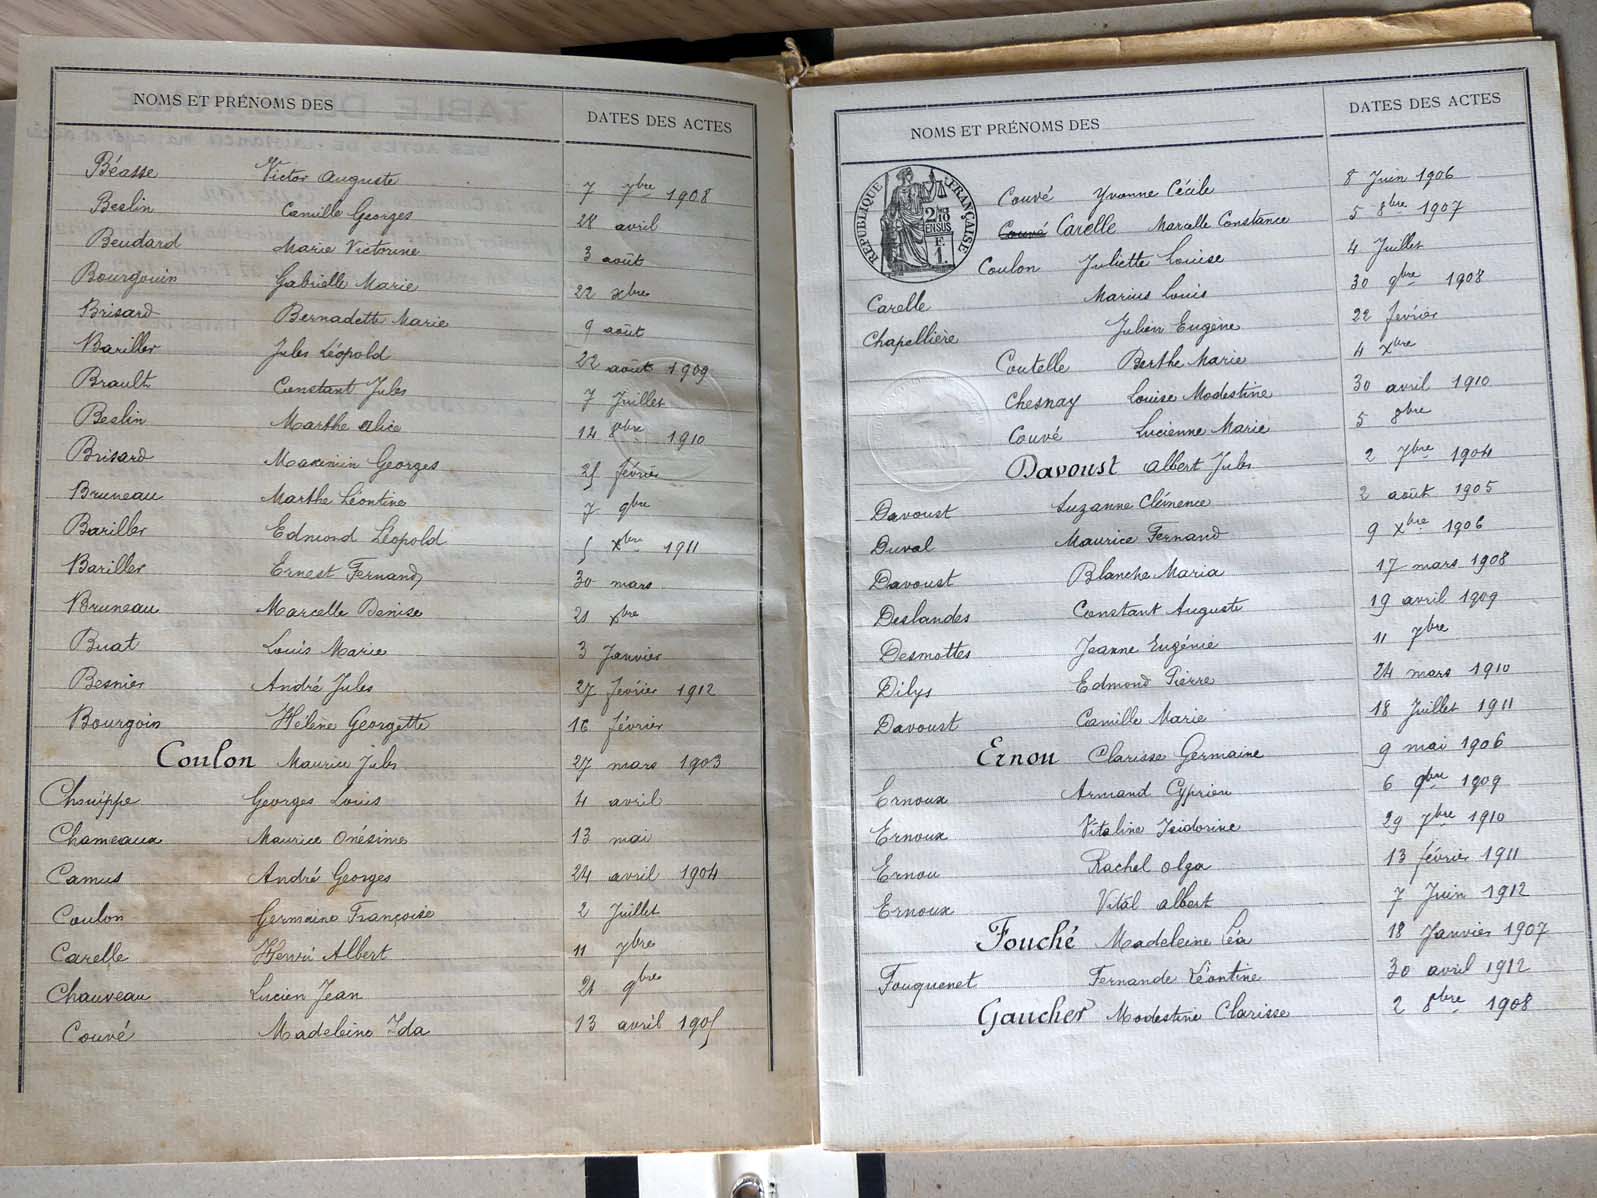 NOMS ET PRÉNOMS DES DATES DES ACTES
Béasse Victor Auguste 7 7bre 1908
Beslin Camille Georges 28 avril
Beudard Marie Victorine 3 août
Bourgouin Gabrielle Marie 22 xbre
Brisard Bernadette Marie 9 août
Bariller Jules Léopold 22 août 1909
Brault Constant Jules 7 Juillet
Beslin Marthe Alice 14 8bre 1910
Brisard Maximin Georges 25 février
Bruneau Marthe Léontine 7 9bre
Bariller Edmond Léopold 5 Xbre 1911
Bariller Ernest Fernand 30 mars
Bruneau Marcelle Denise 21 xbre
Buat Louis Marie 3 Janvier
Besnier André Jules 27 février 1912
Bourgoin Hélène Georgette 16 février
Coulon Maurice Jules 27 mars 1903
Chouippe Georges Louis 4 avril
Chameaux Maurice Onésime 13 mai
Camus André Georges 24 avril 1904
Coulon Germaine Françoise 2 Juillet
Carelle Henri Albert 11 7bre
Chauveau Lucien Jean 21 9bre
Couvé Madeleine Ida 13 avril 1905
NOMS ET PRÉNOMS DES DATES DES ACTES
RÉPUBLIQUE FRANÇAISE
2/10
EN SUS
F.
1.
Couvé Yvonne Cécile 8 Juin 1906
Couvé Carelle Marcelle Constance 5 8bre 1907
Coulon Juliette Louise 4 Juillet
Carelle Marius Louis 30 9bre 1908
Chapellière Julien Eugène 22 février
Coutelle Berthe Marie 4 Xbre
Chesnay Louise Modestine 30 avril 1910
Couvé Lucienne Marie 5 8bre
Davoust Albert Jules 2 7bre 1904
Davoust Suzanne Clémence 2 août 1905
Duval Maurice Fernand 9 Xbre 1906
Davoust Blanche Maria 17 mars 1908
Deslandes Constant Auguste 19 avril 1909
Desmottes Jeanne Eugénie 11 7bre
Dilys Edmond Pierre 24 mars 1910
Davoust Camille Marie 18 Juillet 1911
Ernou Clarisse Germaine 9 mai 1906
Ernoux Armand Cyprien 6 9bre 1909
Ernoux Vitaline Isidorine 29 7bre 1910
Ernou Rachel Olga 13 février 1911
Ernoux Vital Albert 7 Juin 1912
Fouché Madeleine Léa 18 Janvier 1907
Fouquenet Fernande Léontine 30 avril 1912
Gaucher Modestine Clarisse 2 8bre 1908